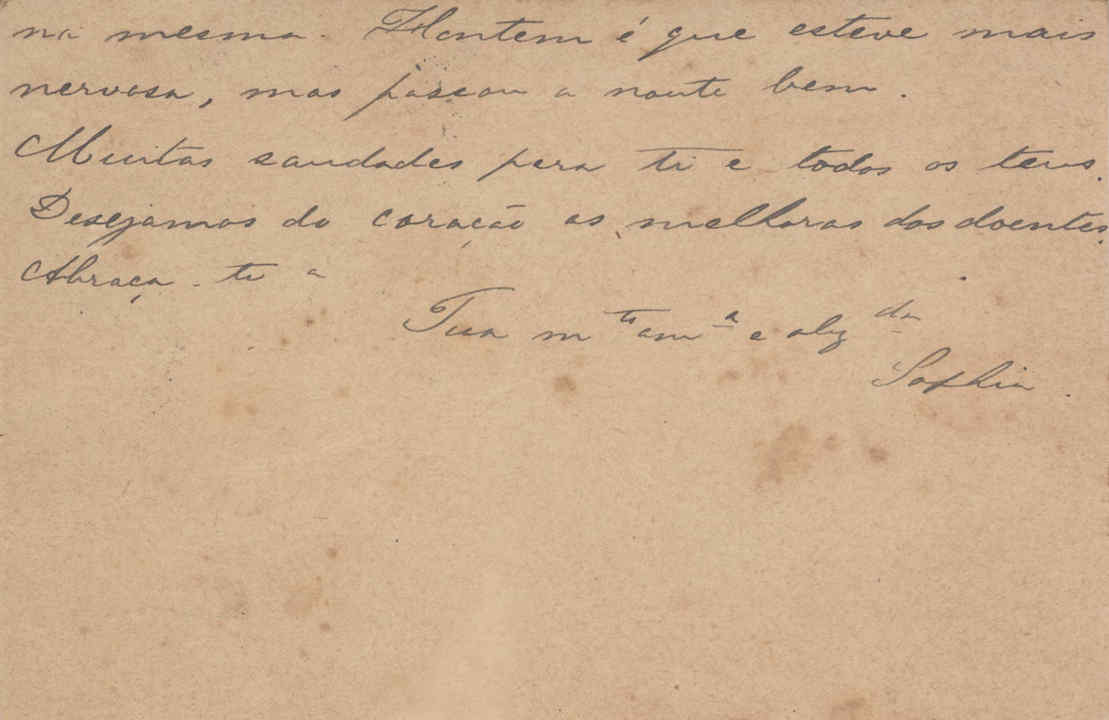 na mesma. Hontem é que esteve mais
nervosa, mas passou a noute bem.
Muitas saudades para ti e todos os teus.
Desejamos do coração as melhoras dos doentes.
Abraça-te a
Tua m.to am.a e obg.da
Sophia.